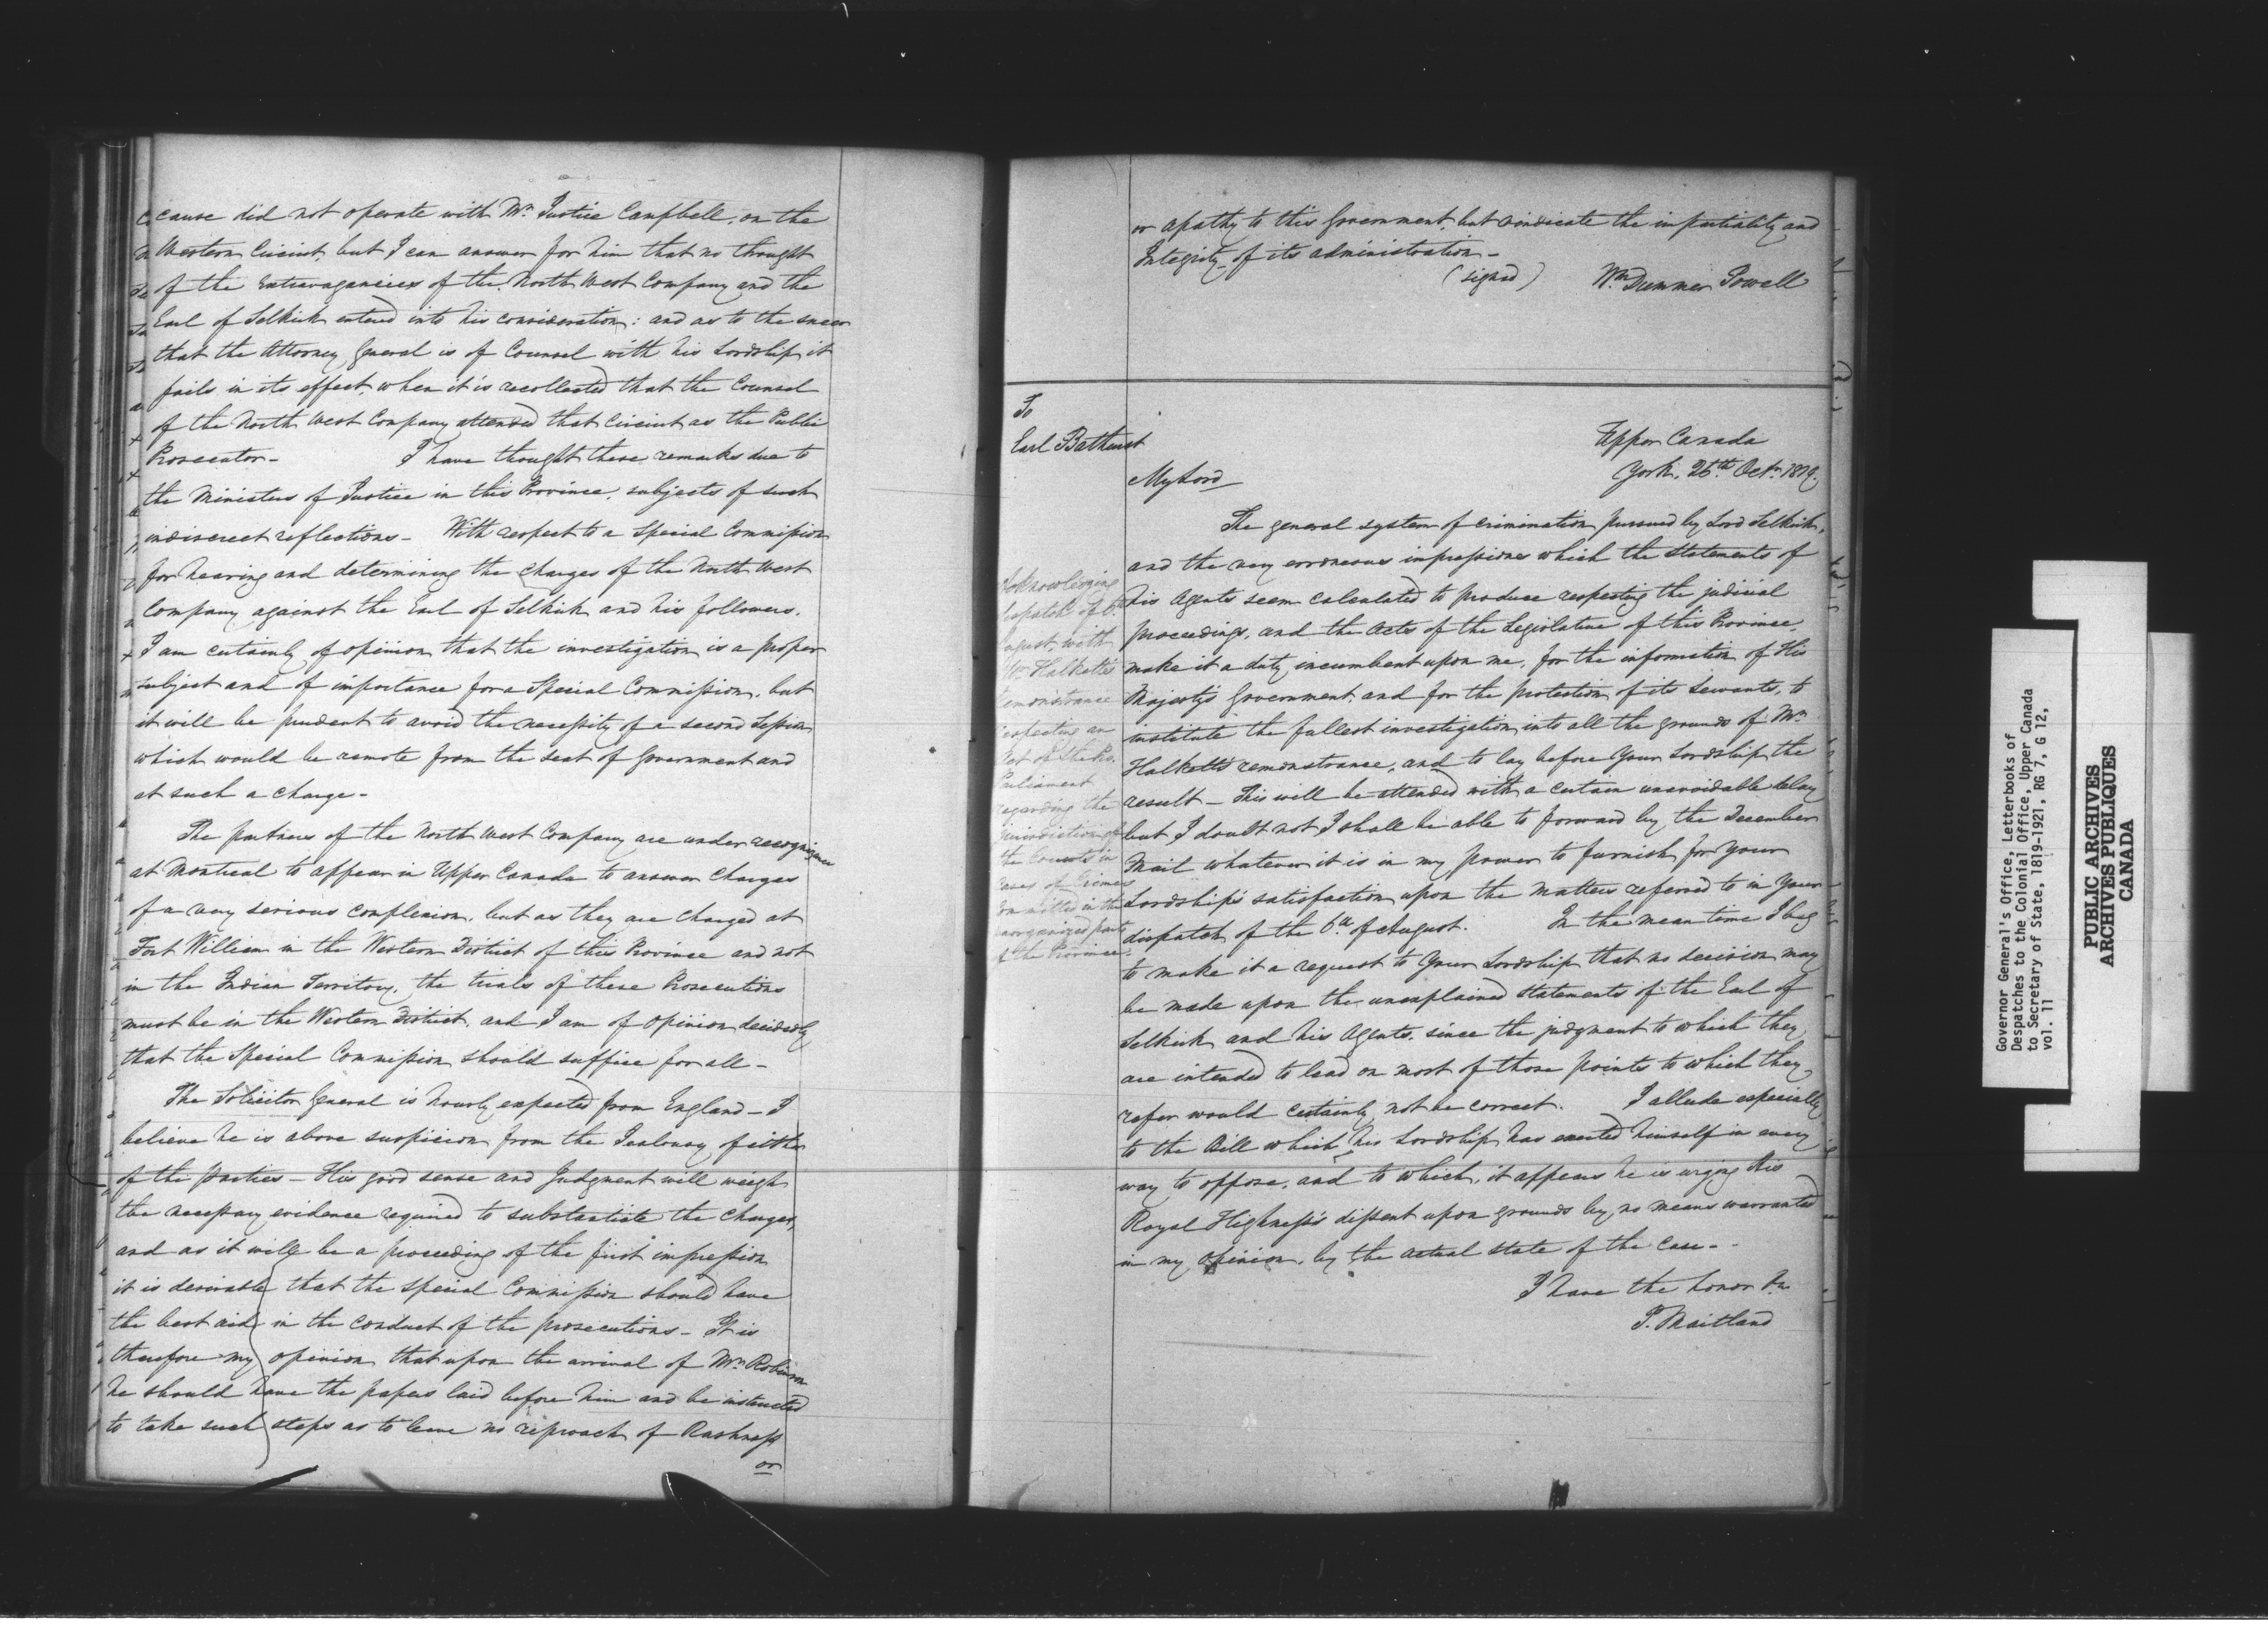 cause did not operate with Mr. Justice Campbell, on the
Western Circuit but I can answer for him that no thought
of the Extravagancies of the North West Company and the
Earl of Selkirk entered into his consideration: and as to the sneer
that the Attorney General is of Counsel with his Lordship it
fails in its effect, when it is recollected that the Counsel
of the North West Company attended that Circuit as the Public
Prosecutor - I have thought these remarks due to
the Ministers of Justice in this Province, subjects of such
indiscreet reflections - With respect to a Special Commission
for hearing and determining the Charges of the North West
Company against the Earl of Selkirk and his followers,
I am certainly of opinion that the investigation is a proper
subject and of importance for a Special Commission, but
it will be prudent to avoid the necessity of a second Session
which would be remote from the seat of Government and
at such a charge -
The partners of the North West Company are under recognizance
at Montreal to appear in Upper Canada to answer Charges
of a very serious complexion, but as they are charged at
Fort William in the Western District of this Province and not
in the Indian Territory, the trials of these Prosecutions
must be in the Western District, and I am of opinion decidedly
that the Special Commission should suffice for all -
The Solicitor General is hourly expected from England - I
believe he is above suspicion from the Jealousy of either
of the parties - His good sense and Judgment will weigh
the necessary evidence required to substantiate the Charges,
and as it will be a proceeding of the first impression
it is desirable that the Special Commission should have
the best aid in the conduct of the prosecutions - It is
therefore my opinion that upon the arrival of Mr. Robinson
he should have the papers laid before him and be instructed
to take such steps as to leave no reproach of Rashness
or
or apathy to this Government, but vindicate the impartiality and
Integrity of its administration -
(signed) Wm. Dummer Powell
To
Earl Bathurst
Upper Canada
York, 26th. Octr. 1819.
My Lord
Acknowledging
dispatch of 6th
August, with
Mr. Halkett's
remonstrance
respecting an
Act of the Pro.
Parliament
regarding the
jurisdiction of
the Courts in
cases of Crimes
committed in the
unorganized parts
of the Province.
The general system of crimination pursued by Lord Selkirk,
and the very erroneous impressions which the statements of
his Agents seem calculated to produce respecting the judicial
proceedings, and the Acts of the Legislature of this Province
make it a duty incumbent upon me, for the information of His
Majesty's Government, and for the protection of its Servants, to
institute the fullest investigation into all the grounds of Mr.
Halkett's remonstrance, and to lay before Your Lordship the
result - This will be attended with a certain unavoidable delay
but I doubt not I shall be able to forward by the December
Mail whatever it is in my power to furnish for Your
Lordship's satisfaction upon the matters referred to in Your
dispatch of the 6th. of August. In the mean time I beg
to make it a request to Your Lordship that no decision may
be made upon the unexplained statements of the Earl of
Selkirk and his Agents, since the judgment to which they
are intended to lead on most of those points to which they
refer would certainly not be correct. I allude especially
to the Bill which his Lordship has exerted himself in every
way to oppose, and to which, it appears he is urging His
Royal Highness's dissent upon grounds by no means warranted
in my opinion, by the actual state of the case. -
I have the honor &c.
P. Maitland
Governor General's Office, Letterbooks of
Despatches to the Colonial Office, Upper Canada
to Secretary of State, 1819-1921, RG 7, G 12,
vol. 11
PUBLIC ARCHIVES
ARCHIVES PUBLIQUES
CANADA